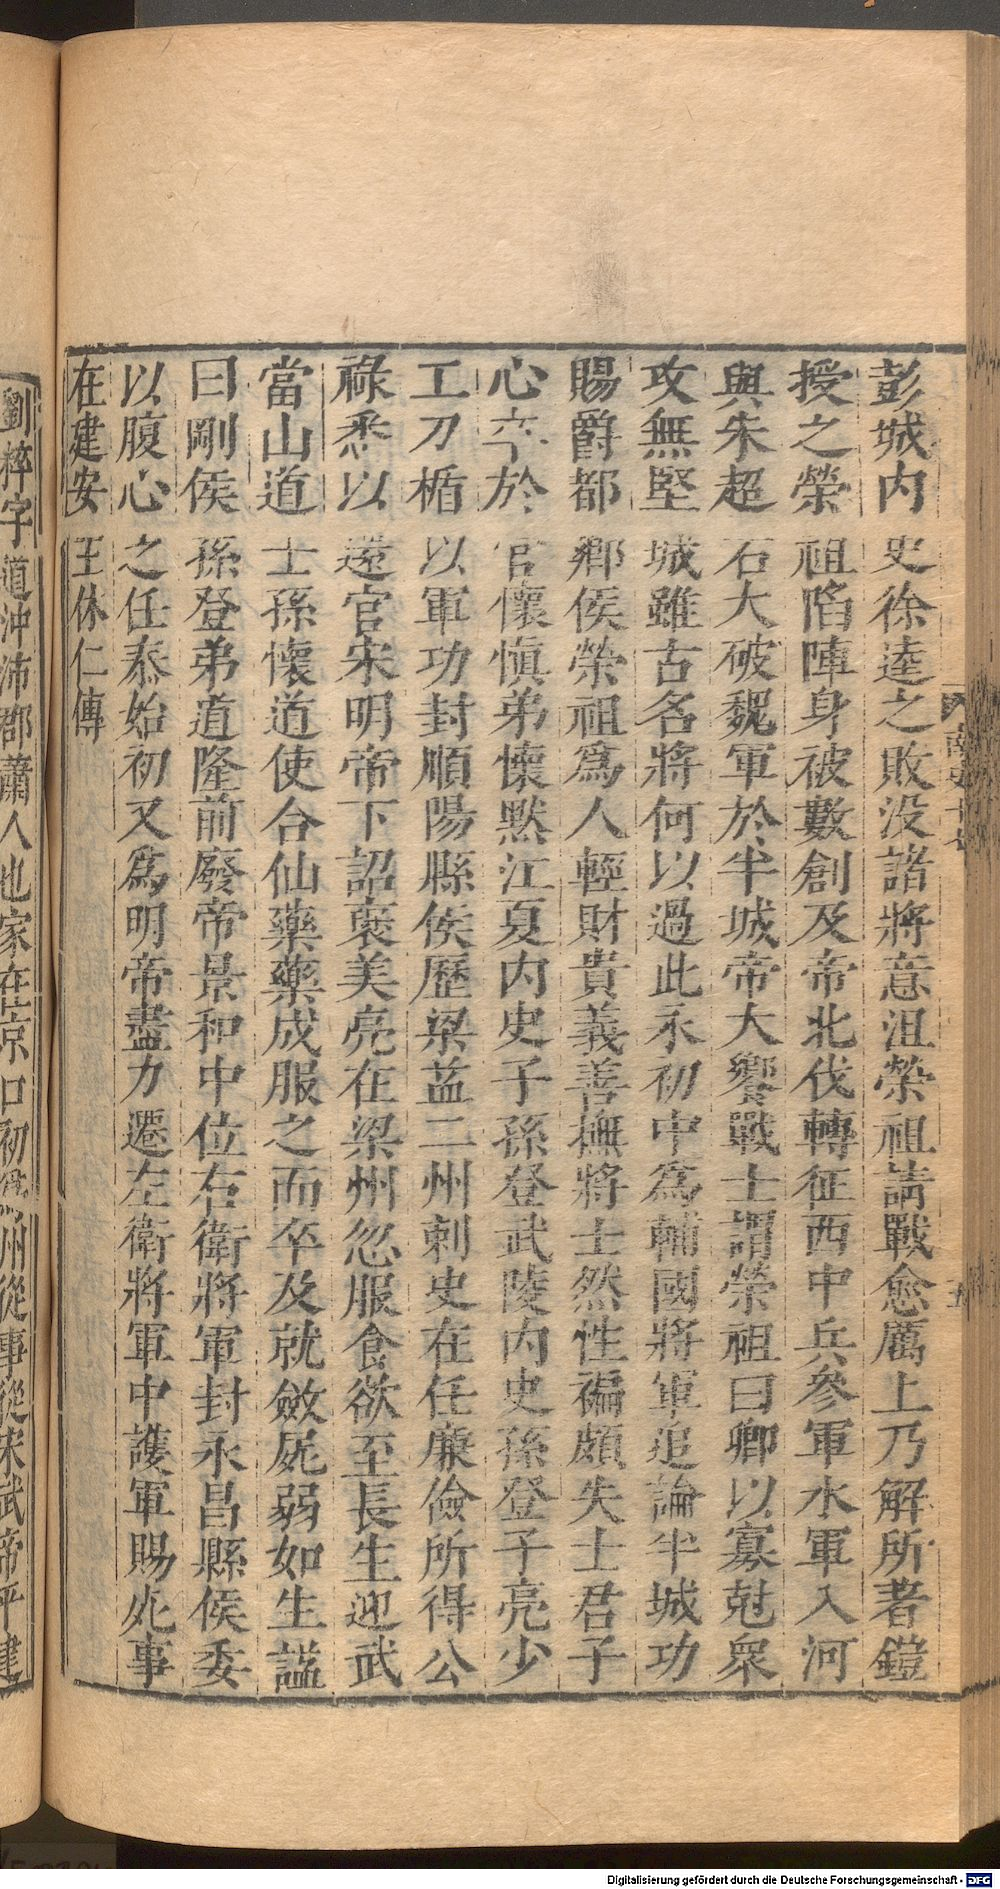 彭城内史徐逵之敗没諸將意沮榮祖請戰愈厲上乃解所者鎧
授之榮祖陷陣身被數創及帝北伐轉征西中兵參軍水軍入河
與朱超石大破魏軍於半城帝大饗戰士謂榮祖曰卿以寡尅衆
攻無堅城雖古名將何以過此永初中爲輔國將軍追論半城功
賜爵都鄉侯榮祖爲人輕財貴義善撫將士然性褊頗失士君子
心卒於官懷愼弟懷黙江夏内史子孫登武陵内史孫登子亮少
工刀楯以軍功封順陽縣侯歷梁益二州刺史在任廉儉所得公
祿悉以還官宋明帝下詔褒美亮在梁州忽服食欲至長生迎武
當山道士孫懷道使合仙藥藥成服之而卒及就斂屍弱如生謚
曰剛侯孫登弟道隆前廢帝景和中位右衛將軍封永昌縣侯委
以腹心之任泰始初又爲明帝盡力遷左衛將軍中護軍賜死事
在建安王休仁傳
劉粹字道沖沛郡蕭人也家在京口初爲州從事從宋武帝平建
南史十七
五
Digitalisierung gefördert durch die Deutsche Forschungsgemeinschaft - DFG